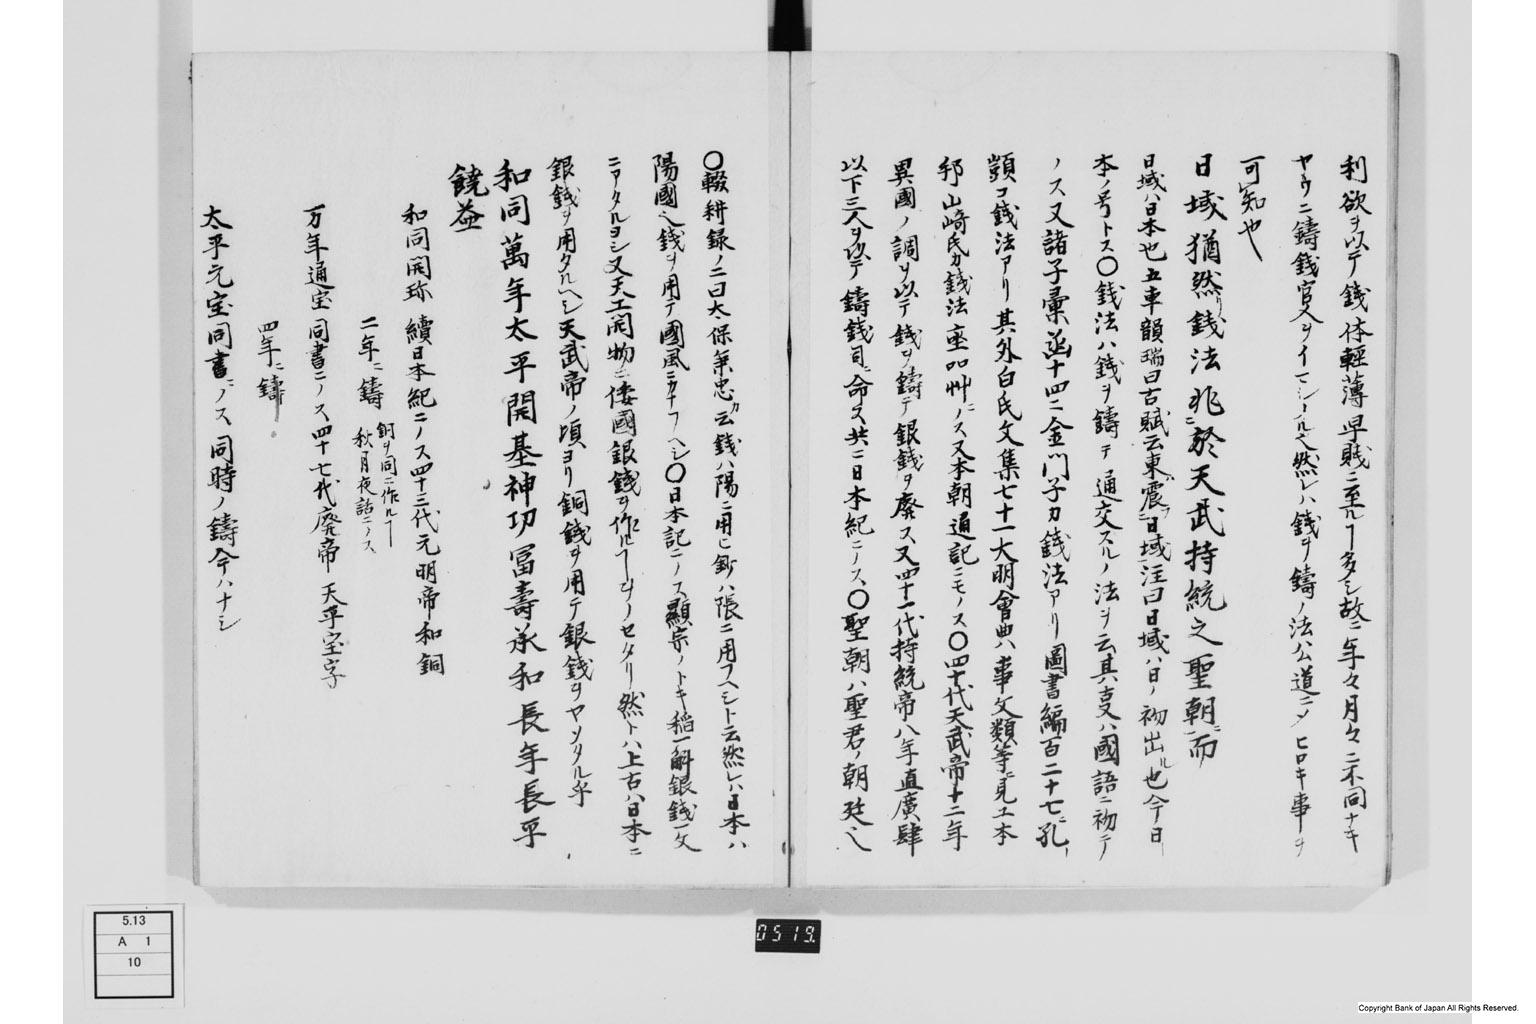 利欲ヲ以テ銭体軽薄卑賎ニ至ルヿ多シ故ニ年々月々ニ不同ナキ
ヤウニ鋳銭官人ヲイマシムル也然レハ銭ヲ鋳ノ法公道ニメヒロキ事ヲ
可知也
日域猶然銭法兆於天武持統之聖朝而
日域ハ日本也五車韻瑞曰古賦云東震日域注曰日域ハ日ノ初出ル也今日
本ノ号トス〇銭法ハ銭ヲ鋳テ通交スルノ法ヲ云其支ハ國語ニ初テ
ノス又諸子彙函十四ニ金門子カ銭法アリ圖書編百二十七ニ孔
顗コ銭法アリ其外白氏文集七十一大明會典ハ事文類等ニ見エ本
邦山﨑氏カ銭法座叩艸ニノス又本朝通記ニモノス〇四十代天武帝十二年
異國ノ調ヲ以テ銭ヲ鋳テ銀銭ヲ廃ス又四十一代持統帝八年直廣肆
以下三人ヲ以テ鋳銭司ニ命ス共ニ日本紀ニノス〇聖朝ハ聖君ノ朝廷也
〇輟耕録ノ二曰太保秉忠カ云銭ハ陽ニ用ヒ鈔ハ陰ニ用フヘシト云然レハ日本ハ
陽國也銭ヲ用テ國風ニカナフヘシ〇日本記ニノス顯宗ノトキ稲一斛銀銭一文
ニアタルヨシ又天工開物ニ倭國銀銭ヲ作ルヿヲノセタリ然トハ上古ハ日本ニ
銀銭ヲ用タルヘシ天武帝ノ頃ヨリ銅銭ヲ用テ銀銭ヲヤメタル乎
和同萬年太平開基神功冨壽承和長年長平
饒益
和同開珎 續日本紀ニノス四十三代元明帝和銅
二年ニ鋳 銅ヲ同ニ作ルヿ
秋月夜話ニノス
万年通宝 同書ニノス四十七代廃帝天平宝字
四年ニ鋳
太平元宝 同書ニノス同時ノ鋳今ハナシ
5.13
A 1
10
0519.
Copyright Bank of Japan All Rights Reserved.